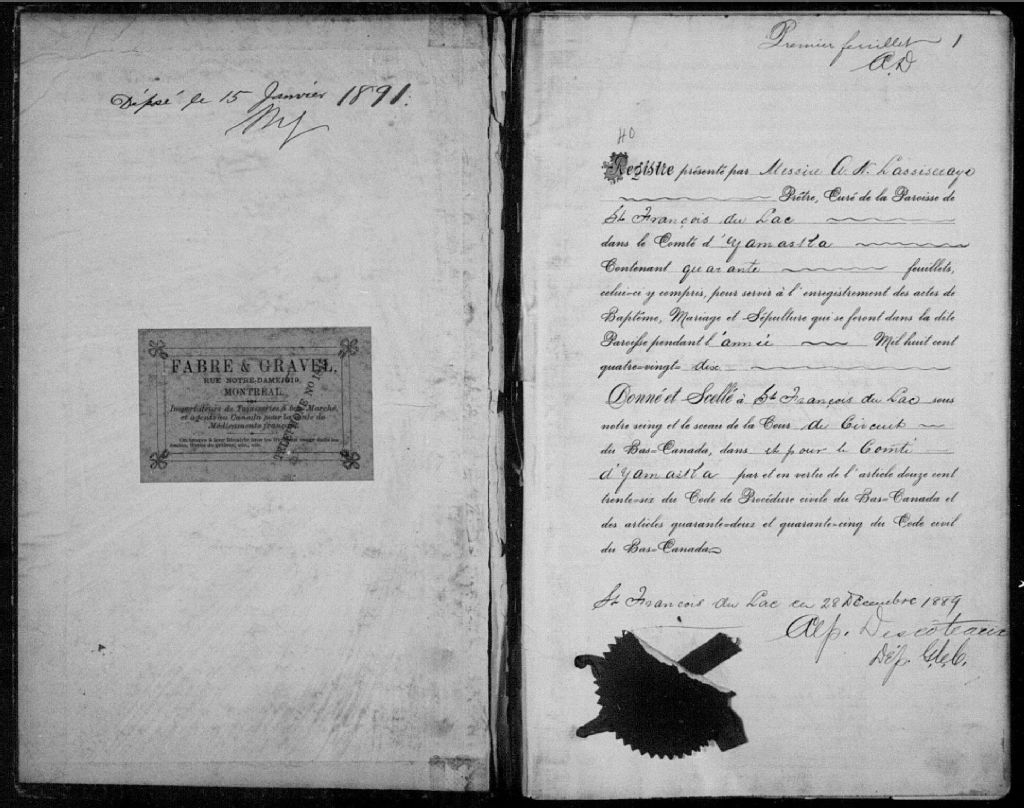 Déposé le 15 Janvier 1891.
FABRE & GRAVEL,
RUE NOTRE-DAME, 1619,
MONTREAL,
Importateurs de Tapisseries à bon Marché,
et agents au Canada pour la vente de
Médicaments français.
TELEPHONE No
Premier feuillet 1
A.D
40
Registre présenté par Messire
Prêtre, Curé de la Paroisse de
St François du Lac
dans le Comté d'Yamaska
Contenant quarante feuillets,
celui-ci y compris, pour servir à l'enregistrement des actes de
Baptême, Mariage et Sépulture qui se feront dans la dite
Paroisse pendant l'année Mil huit cent
quatre-vingt-dix
Donné et Scellé à St François du Lac sous
notre seing et le sceau de la Cour de Circuit
du Bas-Canada, dans et pour le Comté
d'Yamaska par et en vertu de l'article douze cent
trente-six du Code de Procédure civile du Bas-Canada et
des articles quarante-deux et quarante-cinq du Code civil
du Bas-Canada
St François du Lac ce 28 Décembre 1889
Alp. Descoteaux
Dép. G.C.C.